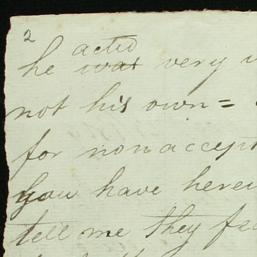 2
acted
he was very
not his own =
for nonaccept
You have herew
tell me they fea